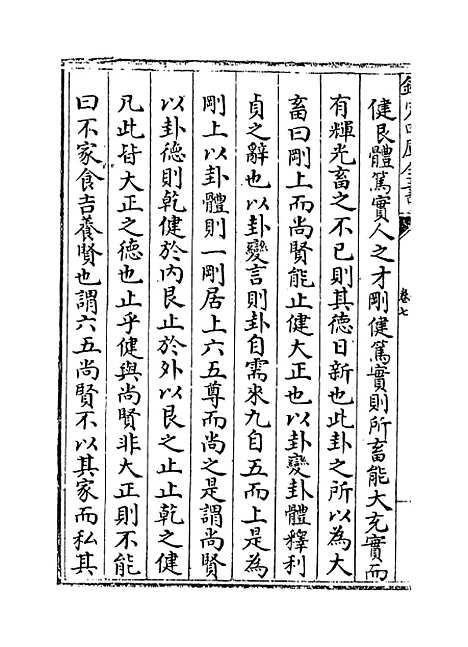 欽定四庫全書
卷七
健艮體篤實人之才剛健篤實則所畜能大充實而
有輝光畜之不已則其德日新也此卦之所以為大
畜曰剛上而尚賢能止健大正也以卦變卦體釋利
貞之辭也以卦變言則卦自需來九自五而上是為
剛上以卦體則一剛居上六五尊而尚之是謂尚賢
以卦德則乾健於內艮止於外以艮之止止乾之健
凡此皆大正之德也止乎健與尚賢非大正則不能
曰不家食吉養賢也謂六五尚賢不以其家而私其